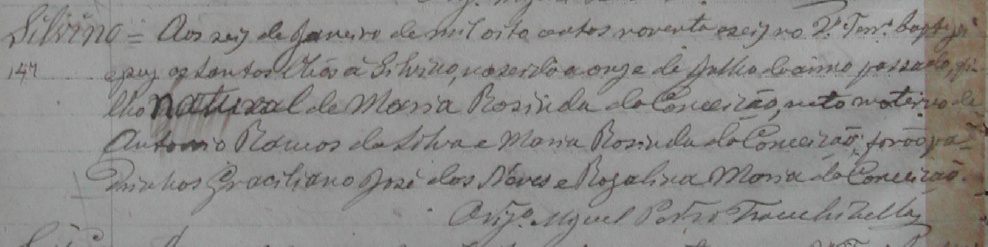 Silvino = Aos seis de Janeiro de mil oito centos noventa e seis no P. Terr. baptizei
147 e puz os Santos Oleos á Silvino, nascido a onze de Julho do anno passado, fi-
lho natural de Maria Rosinda da Conceição, neto materno de
Antonio Ramos da Silva e Maria Rosinda da Conceição; forão pa-
drinhos Graciliano José das Neves e Rosalina Maria da Conceição.
O Vigº. Miguel Pedro